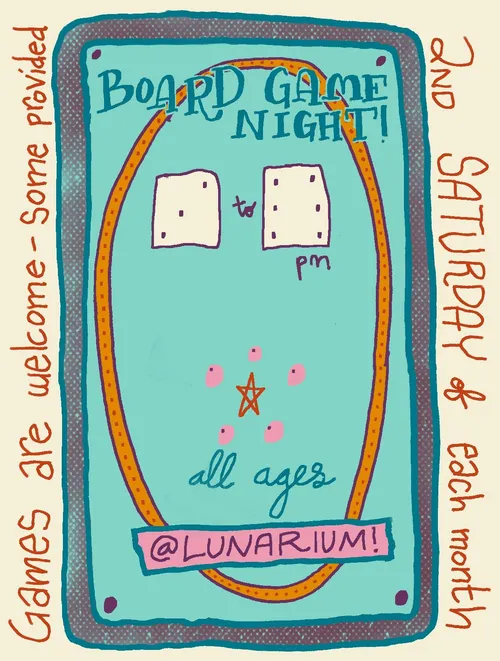 BOARD GAME
NIGHT!
to
pm
all ages
@LUNARIUM!
Games are welcome - some provided
2ND SATURDAY of each month